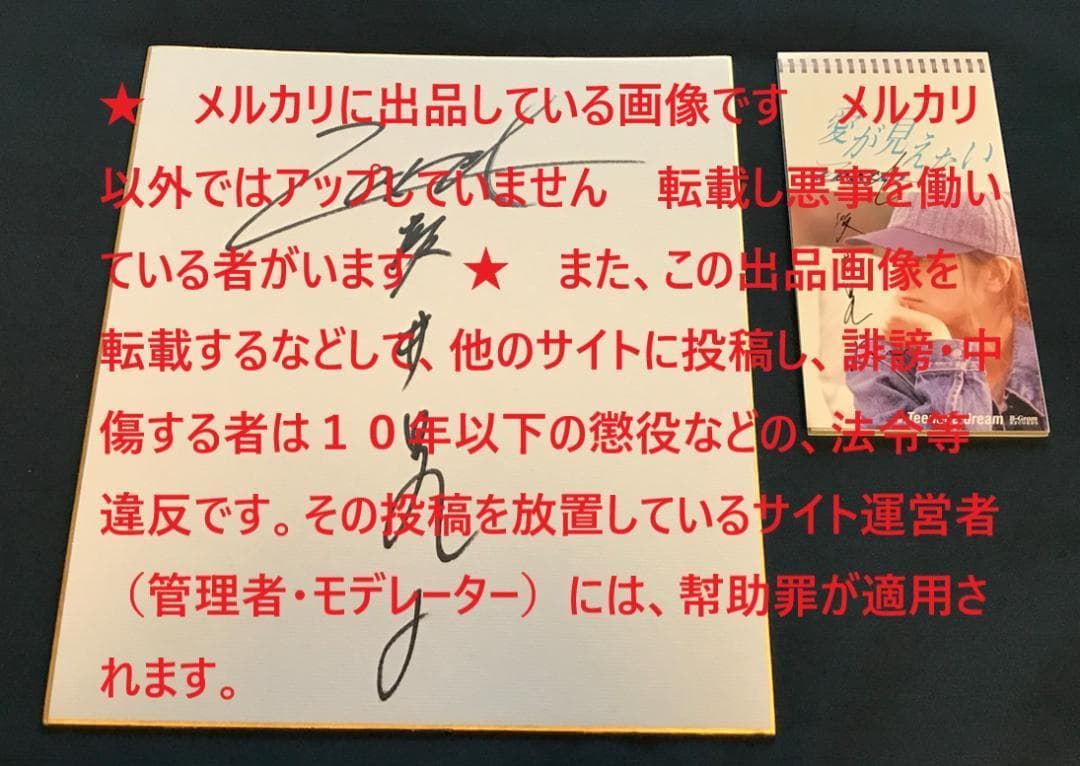 ★　メルカリに出品している画像です　メルカリ
以外ではアップしていません　転載し悪事を働い
ている者がいます　★　また、この出品画像を
転載するなどして、他のサイトに投稿し、誹謗・中
傷する者は１０年以下の懲役などの、法令等
違反です。その投稿を放置しているサイト運営者
（管理者・モデレーター）には、幇助罪が適用さ
れます。
Zard
坂井泉水
愛が見えない
Teenage dream
B-Gram